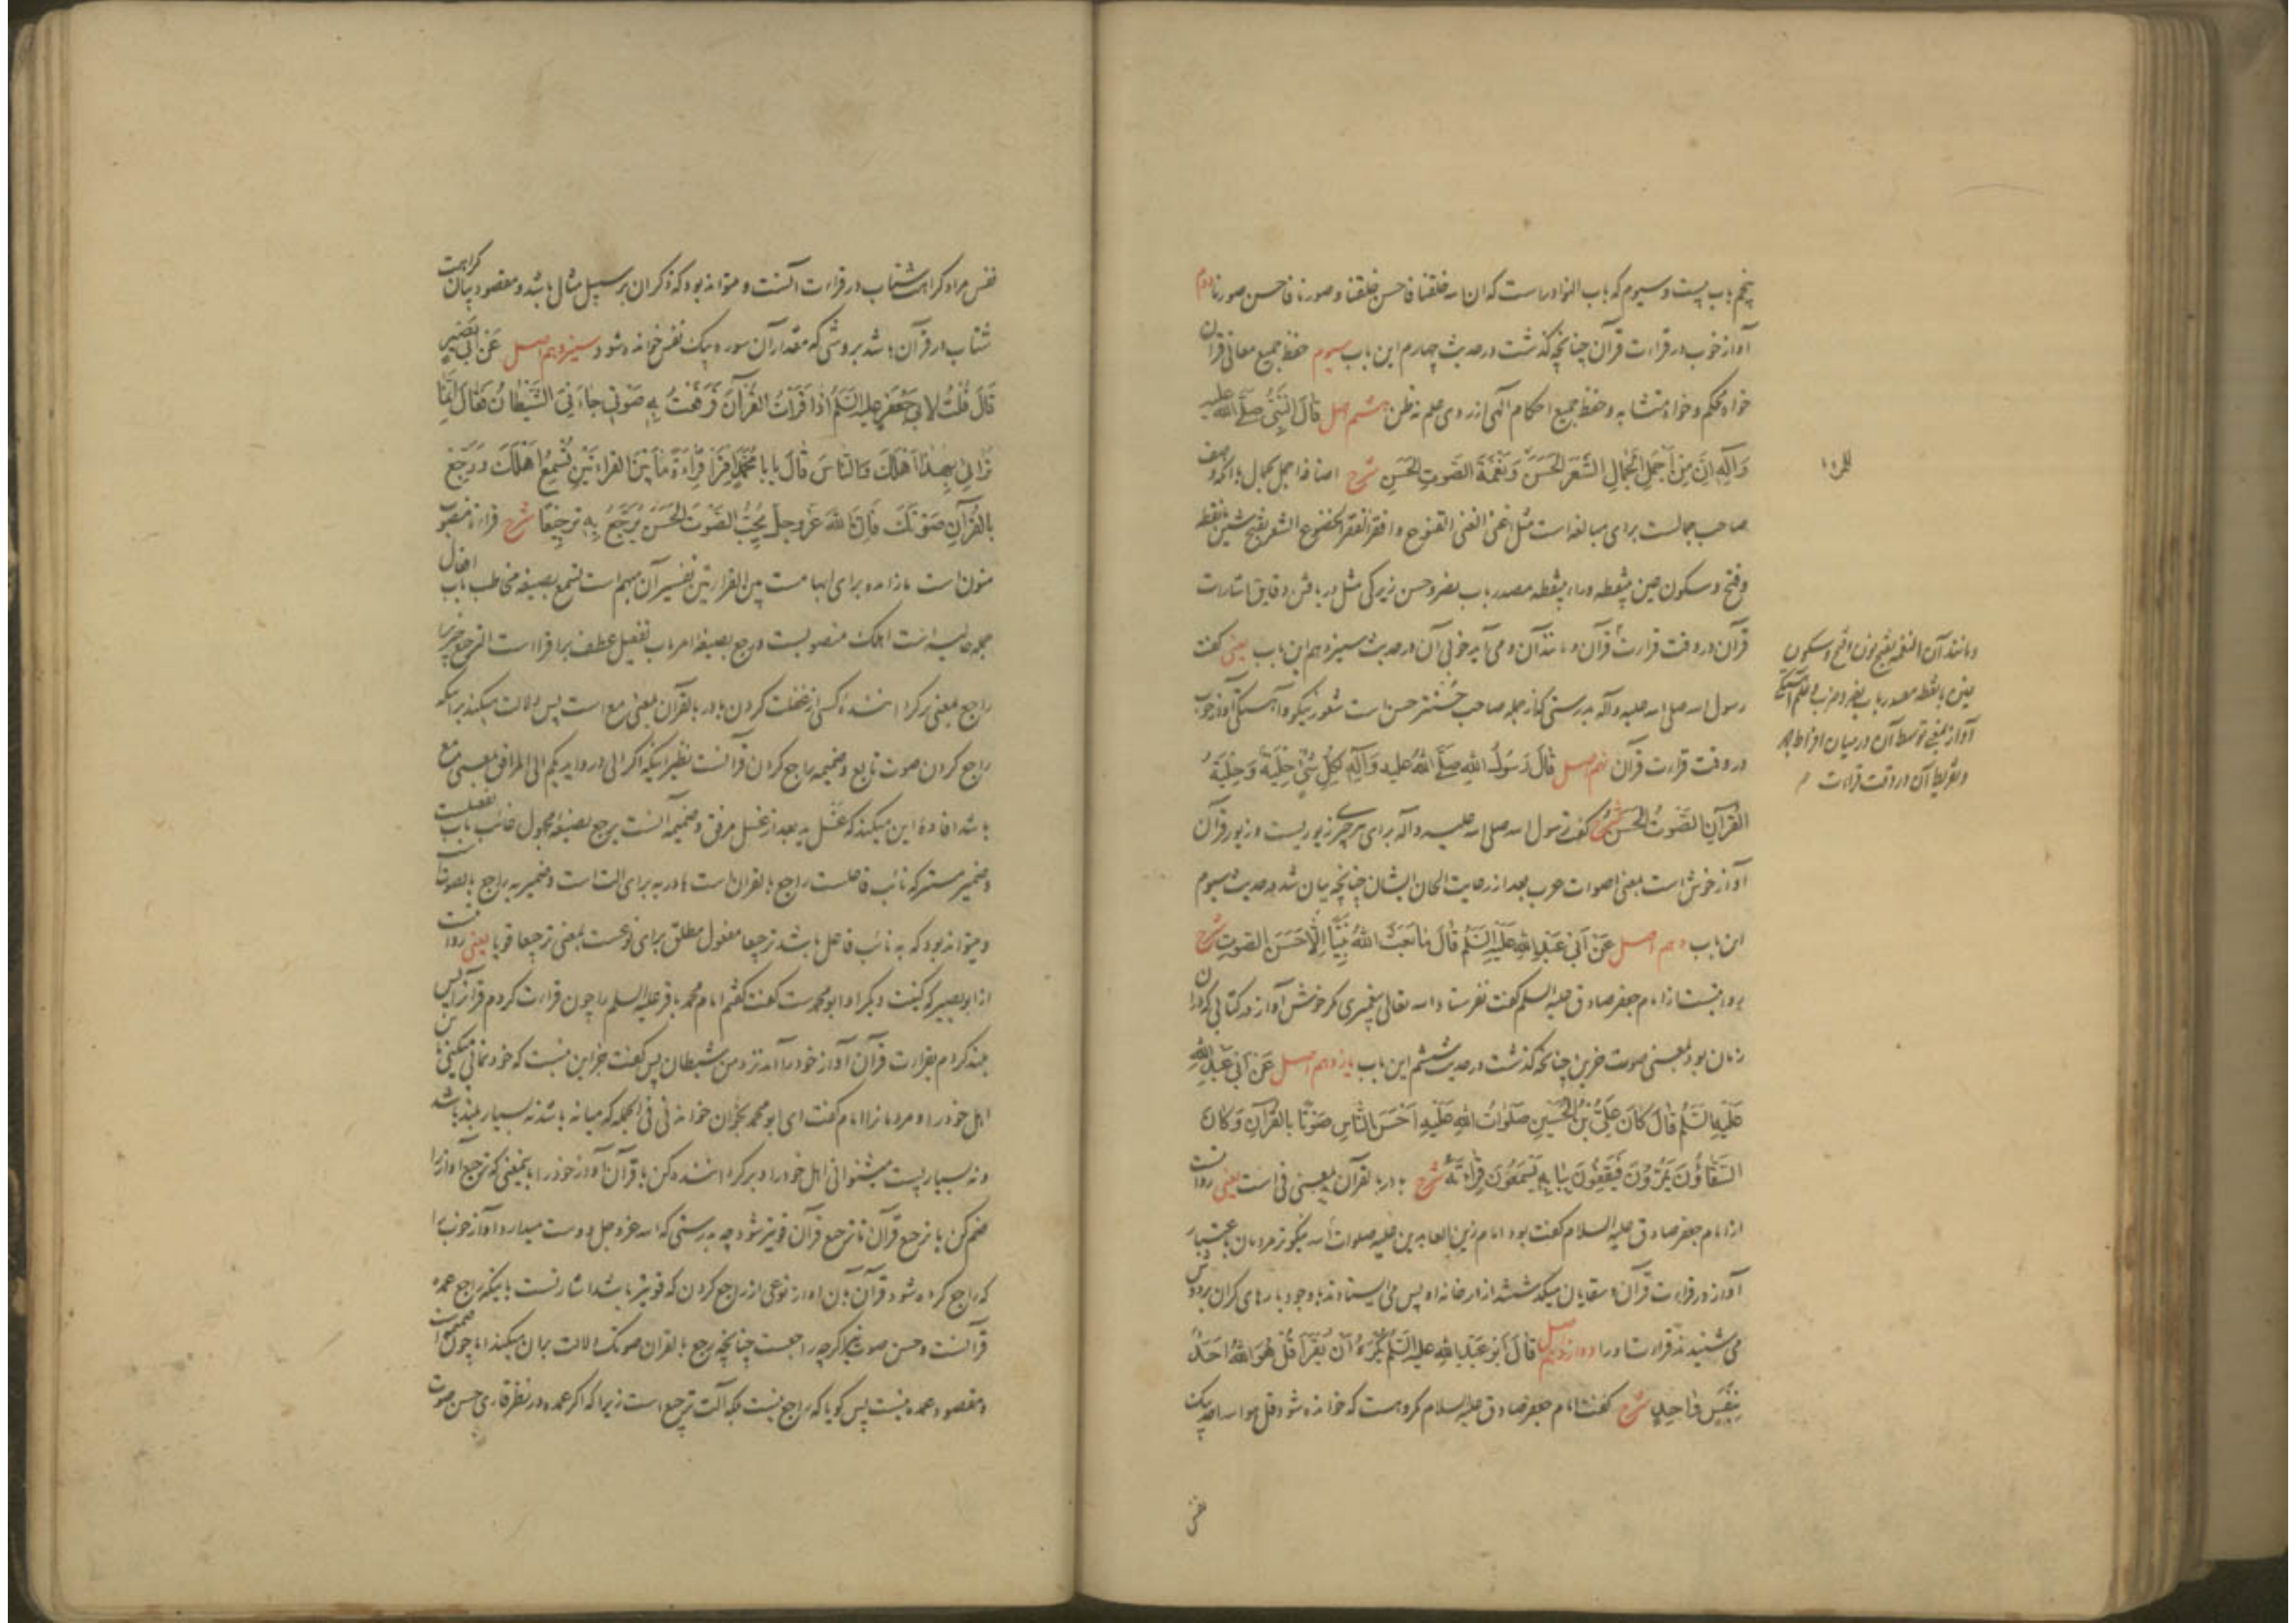 پنجم باب بیست و سیوم که باب النوادر است که ان الله خلقنا فاحسن خلقنا و صورنا فاحسن صورنا دوم
آواز خوب در قراءت قرآن چنانچه گذشت در حدیث چهارم این باب سیوم حفظ جمیع معانی قرآن
خواه محکم و خواه متشابه و حفظ جمیع احکام آلهی از روی علم نه ظن هشتم اصل قَالَ النَّبِيُّ صَلَّى اللهُ عليه
وَآلِهِ اِنَّ مِنْ أَجْمَلِ الْجَمَالِ الشَّعَرَ الْحَسَنَ وَنَغْمَةَ الصَّوتِ الْحَسَنِ شرح اضافه اجمل بجمال با آنکه وصف
صاحب جمالست برای مبالغه است مثل اغنی الغنی القنوع و افقر الفقر الخضوع الشعر بفتح شین بانقطه
و فتح و سکون عین بینقطه و راء بینقطه مصدر باب نصر و حسن زیرکی مثل دریافتن دقایق اشارات
قرآن در وقت قراءت قرآن و مانند آن و می آید خوبی آن در حدیث سیزدهم این باب یعنی گفت
رسول الله صلی الله علیه و آله بدرستی که از جمله صاحب حسنتر حسن است شعور نیکو و آهستگی آواز خوب
در وقت قراءت قرآن نهم اصل قَالَ رَسُولُ اللهِ صَلَّى اللهُ عليه وَآلِهِ لِكُلِّ شَيْءٍ حِلْيَةٌ وَحِلْيَةُ
الْقُرْآنِ الصَّوْتُ الْحَسَنُ شرح گفت رسول الله صلی الله علیه و آله برای هر چیز زیوریست و زیور قرآن
آواز خوش است بمعنی اصوات عرب بعد از رعایت الحان ایشان چنانچه بیان شد در حدیث سیوم
این باب دهم اصل عَنْ أَبِي عَبْدِ اللهِ عَلَيْهِ السَّلَمُ قَالَ مَا بَعَثَ اللهُ نَبِيًّا اِلَّا حَسَنَ الصَّوتِ شرح
روایتست از امام جعفر صادق علیه السلم گفت نفرستاد الله تعالی پیغمبری مگر خوش آواز در کتابی که در آن
زمان بود بمعنی صوت حزین چنانچه گذشت در حدیث ششم این باب یازدهم اصل عَنْ أَبِي عَبْدِ اللهِ
عَلَيْهِ السَّلَمُ قَالَ كَانَ عَلِيُّ بْنُ الْحُسَيْنِ صَلَوَاتُ اللهِ عَلَيْهِ اَحْسَنَ النَّاسِ صَوْتًا بِالْقُرْآنِ وَكَانَ
السَّقَّاؤُنَ يَمُرُّونَ فَيَقِفُونَ بِبَابِهِ يَسْمَعُونَ قِرَاءَتَهُ شرح باء در بالقرآن بمعنی فی است یعنی روایتست
از امام جعفر صادق علیه السلام گفت بود امام زین العابدین علیه صلوات الله نیکوتر مردمان باعتبار
آواز در قراءت قرآن و سقایان میگذشتند از در خانه او پس می ایستادند با وجود بارهای گران بر دوش
می شنیدند قراءت او را دوازدهم اصل قَالَ أَبُو عَبْدِ اللهِ عليه السَّلَمُ يُكْرَهُ أَنْ يُقْرَأَ قُلْ هُوَ اللهُ اَحَدٌ
بِنَفَسٍ وَاحِدٍ شرح گفت امام جعفر صادق علیه السلام مکروهست که خوانده شود قل هو الله احد بیک
نفس
و مانند آن النغمة بفتح نون و فتح و سکون
غین بانقطه مصدر باب نصر و ضرب و علم آهستگی
آواز بمعنی توسط آن در میان افراط جهر
و تفریط آن در وقت قراءت
نفس مراد کراهت شتاب در قراءت آنست و میتواند بود که ذکر آن بر سبیل مثال باشد و مقصود بیان کراهت
شتاب در قرآن باشد بروشی که مقدار آن سوره بیک نفس خوانده شود سیزدهم اصل عَنْ أَبِي بَصِيرٍ
قَالَ قُلْتُ لِأَبِي جَعْفَرٍ عليه السَّلَمُ إِذَا قَرَأْتُ الْقُرْآنَ فَرَفَعْتُ بِهِ صَوْتِي جَاءَنِيَ الشَّيْطَانُ فَقَالَ اِنَّمَا
تُرَائِي بِهَذَا أَهْلَكَ وَالنَّاسَ قَالَ يَا بَا مُحَمَّدٍ اِقْرَأْ قِرَاءَةً مَا بَيْنَ الْقِرَاءَتَيْنِ تُسْمِعُ اَهْلَكَ وَرَجِّعْ
بِالْقُرْآنِ صَوْتَكَ فَاِنَّ اللهَ عَزَّ وَجَلَّ يُحِبُّ الصَّوْتَ الْحَسَنَ يُرَجَّعُ بِهِ تَرْجِيعًا شرح قراءة منصوب
منون است ما زائده برای ابهامست بین القراءتین تفسیر آن مبهم است تسمع بصیغه مخاطب باب افعال
جمله حالیه است اهلک منصوبست و رجع بصیغه امر باب تفعیل عطف بر اقراء است الترجیع چیزیرا
راجع بمعنی برگرداننده کسی از غفلت کردن باء در بالقرآن بمعنی مع است پس دلالت میکند بر اینکه
راجع کردن صوت تابع و ضمیمه راجع کردن قرآنست نظیر اینکه اگر الی در و ایدیکم الی المرافق بمعنی مع
باشد افاده این میکند که غسل ید بعد از غسل مرفق و ضمیمه آنست یرجع بصیغه مجهول غائب باب تفعیلست
و ضمیر مستتر که نائب فاعلست راجع بالقران است باء در به برای الت است و ضمیر به راجع بالصوت است
و میتواند بود که به نائب فاعل باشد ترجیعا مفعول مطلق برای نوعست بمعنی ترجیعا قویا یعنی روایتست
از ابو بصیر که کنیت دیگر او ابو محمد است گفت گفتم امام محمد باقر علیه السلم را چون قراءت کردم قرآنرا پس
بلند کردم بقراءت قرآن آواز خود را آمد نزد من شیطان پس گفت جز این نیست که خود نمائی میکنی باین
اهل خود را و مردمانرا امام گفت ای ابو محمد بخوان خواندنی فی الجمله که میانه باشد نه بسیار بلند باشد
و نه بسیار پست میشنوانی اهل خود را و برگرداننده کن با قرآن آواز خود را باینمعنی که ترجیع آواز را
ضم کن با ترجیع قرآن تا ترجیع قرآن قویتر شود چه بدرستی که الله عز و جل دوست میدارد آواز خوب را
که راجع کرده شود قرآن بآن آواز نوعی از راجع کردن که قویتر باشد اشارتست باینکه راجع عمده
قرآنست و حسن صوت اگرچه راجعست چنانچه رجع بالقران صوتک دلالت بران میکند اما چون ضمیمه است
و مقصود عمده نیست پس گویا که راجع نیست بلکه آلت ترجیع است زیرا که اگر عمده در نظر قاری حسن صوت